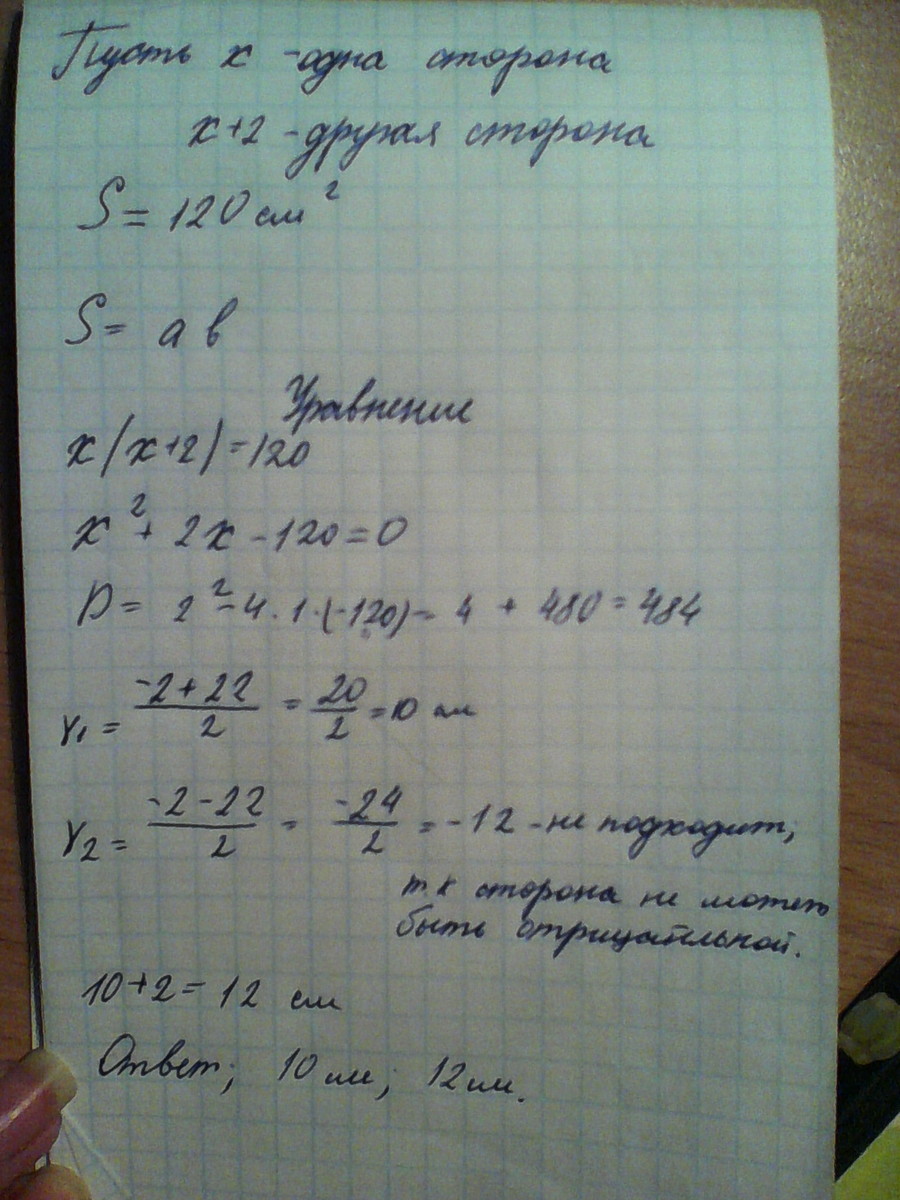 Пусть х - одна сторона
х+2 - другая сторона
S = 120 см²
S = а в
Уравнение
х(х+2)=120
х² + 2х - 120 = 0
D = 2² - 4 · 1 · (-120) = 4 + 480 = 484
х₁ = (-2+22)/2 = 20/2 = 10 см
х₂ = (-2-22)/2 = -24/2 = -12 - не подходит,
т.к сторона не может
быть отрицательной.
10+2 = 12 см
Ответ; 10 см; 12 см.